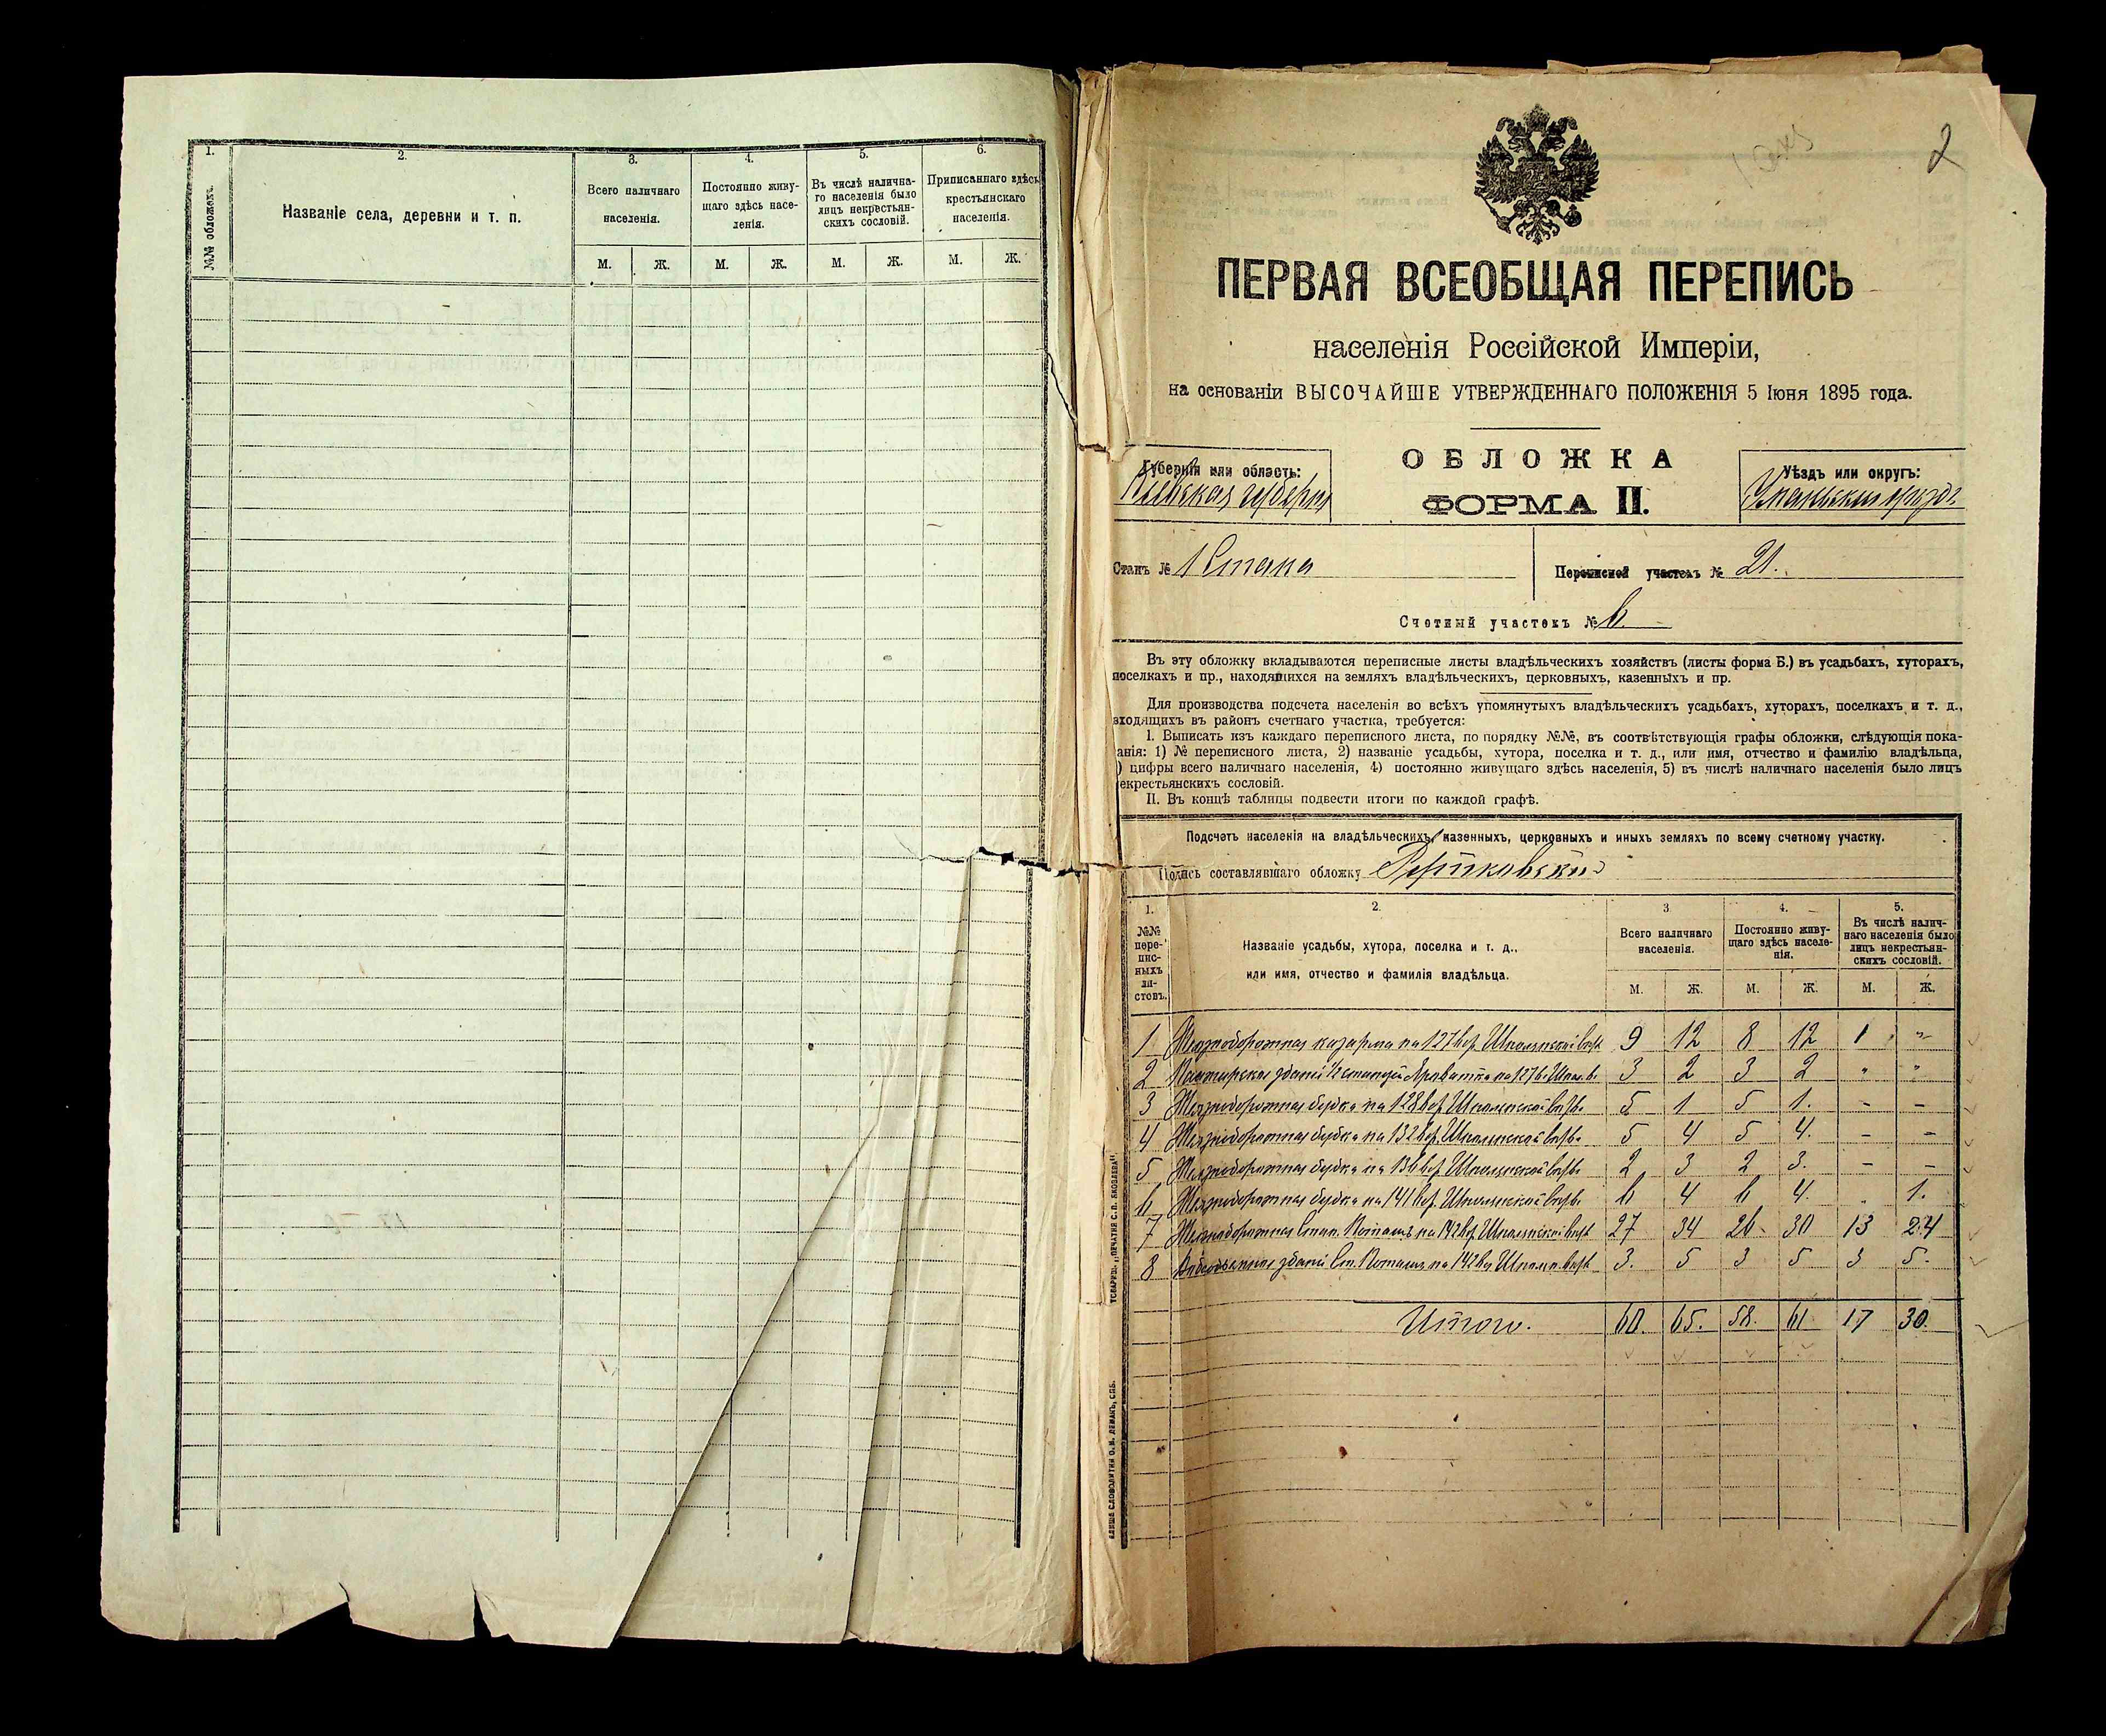 1.
2.
3.
4.
5.
6.
№№ обложек.
Названіе села, деревни и т. п.
Всего наличнаго
населенія.
Постоянно живу-
щаго здѣсь насе-
ленія.
Въ числѣ налична-
го населенія было
лицъ некрестьян-
скихъ сословій.
Приписаннаго здѣсь
крестьянскаго
населенія.
М. Ж. М. Ж. М. Ж. М. Ж.
2
ПЕРВАЯ ВСЕОБЩАЯ ПЕРЕПИСЬ
населенія Россійской Имперіи,
на основаніи ВЫСОЧАЙШЕ УТВЕРЖДЕННАГО ПОЛОЖЕНІЯ 5 Іюня 1895 года.
Губернія или область:
Кіевская губерн
ОБЛОЖКА
ФОРМА II.
Уѣздъ или округъ:
Уманьскій уѣздъ
Станъ № 1 Стана
Переписной участокъ № 21.
Счетный участокъ № 6.
Въ эту обложку вкладываются переписные листы владѣльческихъ хозяйствъ (листы форма Б.) въ усадьбахъ, хуторахъ,
поселкахъ и пр., находящихся на земляхъ владѣльческихъ, церковныхъ, казенныхъ и пр.
Для производства подсчета населенія во всѣхъ упомянутыхъ владѣльческихъ усадьбахъ, хуторахъ, поселкахъ и т. д.,
входящихъ въ районъ счетнаго участка, требуется:
I. Выписать изъ каждаго переписного листа, по порядку №№, въ соотвѣтствующія графы обложки, слѣдующія пока-
анія: 1) № переписного листа, 2) названіе усадьбы, хутора, поселка и т. д., или имя, отчество и фамилію владѣльца,
) цифры всего наличнаго населенія, 4) постоянно живущаго здѣсь населенія, 5) въ числѣ наличнаго населенія было лицъ
екрестьянскихъ сословій.
II. Въ концѣ таблицы подвести итоги по каждой графѣ.
Подсчетъ населенія на владѣльческихъ, казенныхъ, церковныхъ и иныхъ земляхъ по всему счетному участку.
Подпись составлявшаго обложку
1.
2.
3.
4.
5.
№№
пере-
пис-
ныхъ
ли-
стовъ.
Названіе усадьбы, хутора, поселка и т. д.,
или имя, отчество и фамилія владѣльца.
Всего наличнаго
населенія.
Постоянно живу-
щаго здѣсь населе-
нія.
Въ числѣ налич-
наго населенія было
лицъ некрестьян-
скихъ сословій.
М. Ж. М. Ж. М. Ж.
1 Желѣзнодорожная казарма на 127 вер. Шполянской 9 12 8 12 1 "
2 станціи на 127 в. 3 2 3 2 " "
3 Желѣзнодорожная будка на 128 вер. Шполянской 5 1 5 1. – –
4 Желѣзнодорожная будка на 132 вер. Шполянской 5 4 5 4. – –
5 Желѣзнодорожная будка на 136 вер. Шполянской 2 3 2 3. – –
6 Желѣзнодорожная будка на 141 вер. Шполянской 6 4 6 4. . 1.
7 Желѣзнодорожная Стан. Поташъ на 142 вер. Шполянской 27 34 26 30 13 24
8 зданій Ст. Поташъ на 142 вер 3. 5 3 5 3 5.
Итого. 60. 65. 58. 61 17 30.
ТОВАРИЩ. „ПЕЧАТНЯ С. П. ЯКОВЛЕВА“.
КЛИШЕ СЛОВОЛИТНИ О. И. ЛЕМАНЪ, СПБ.